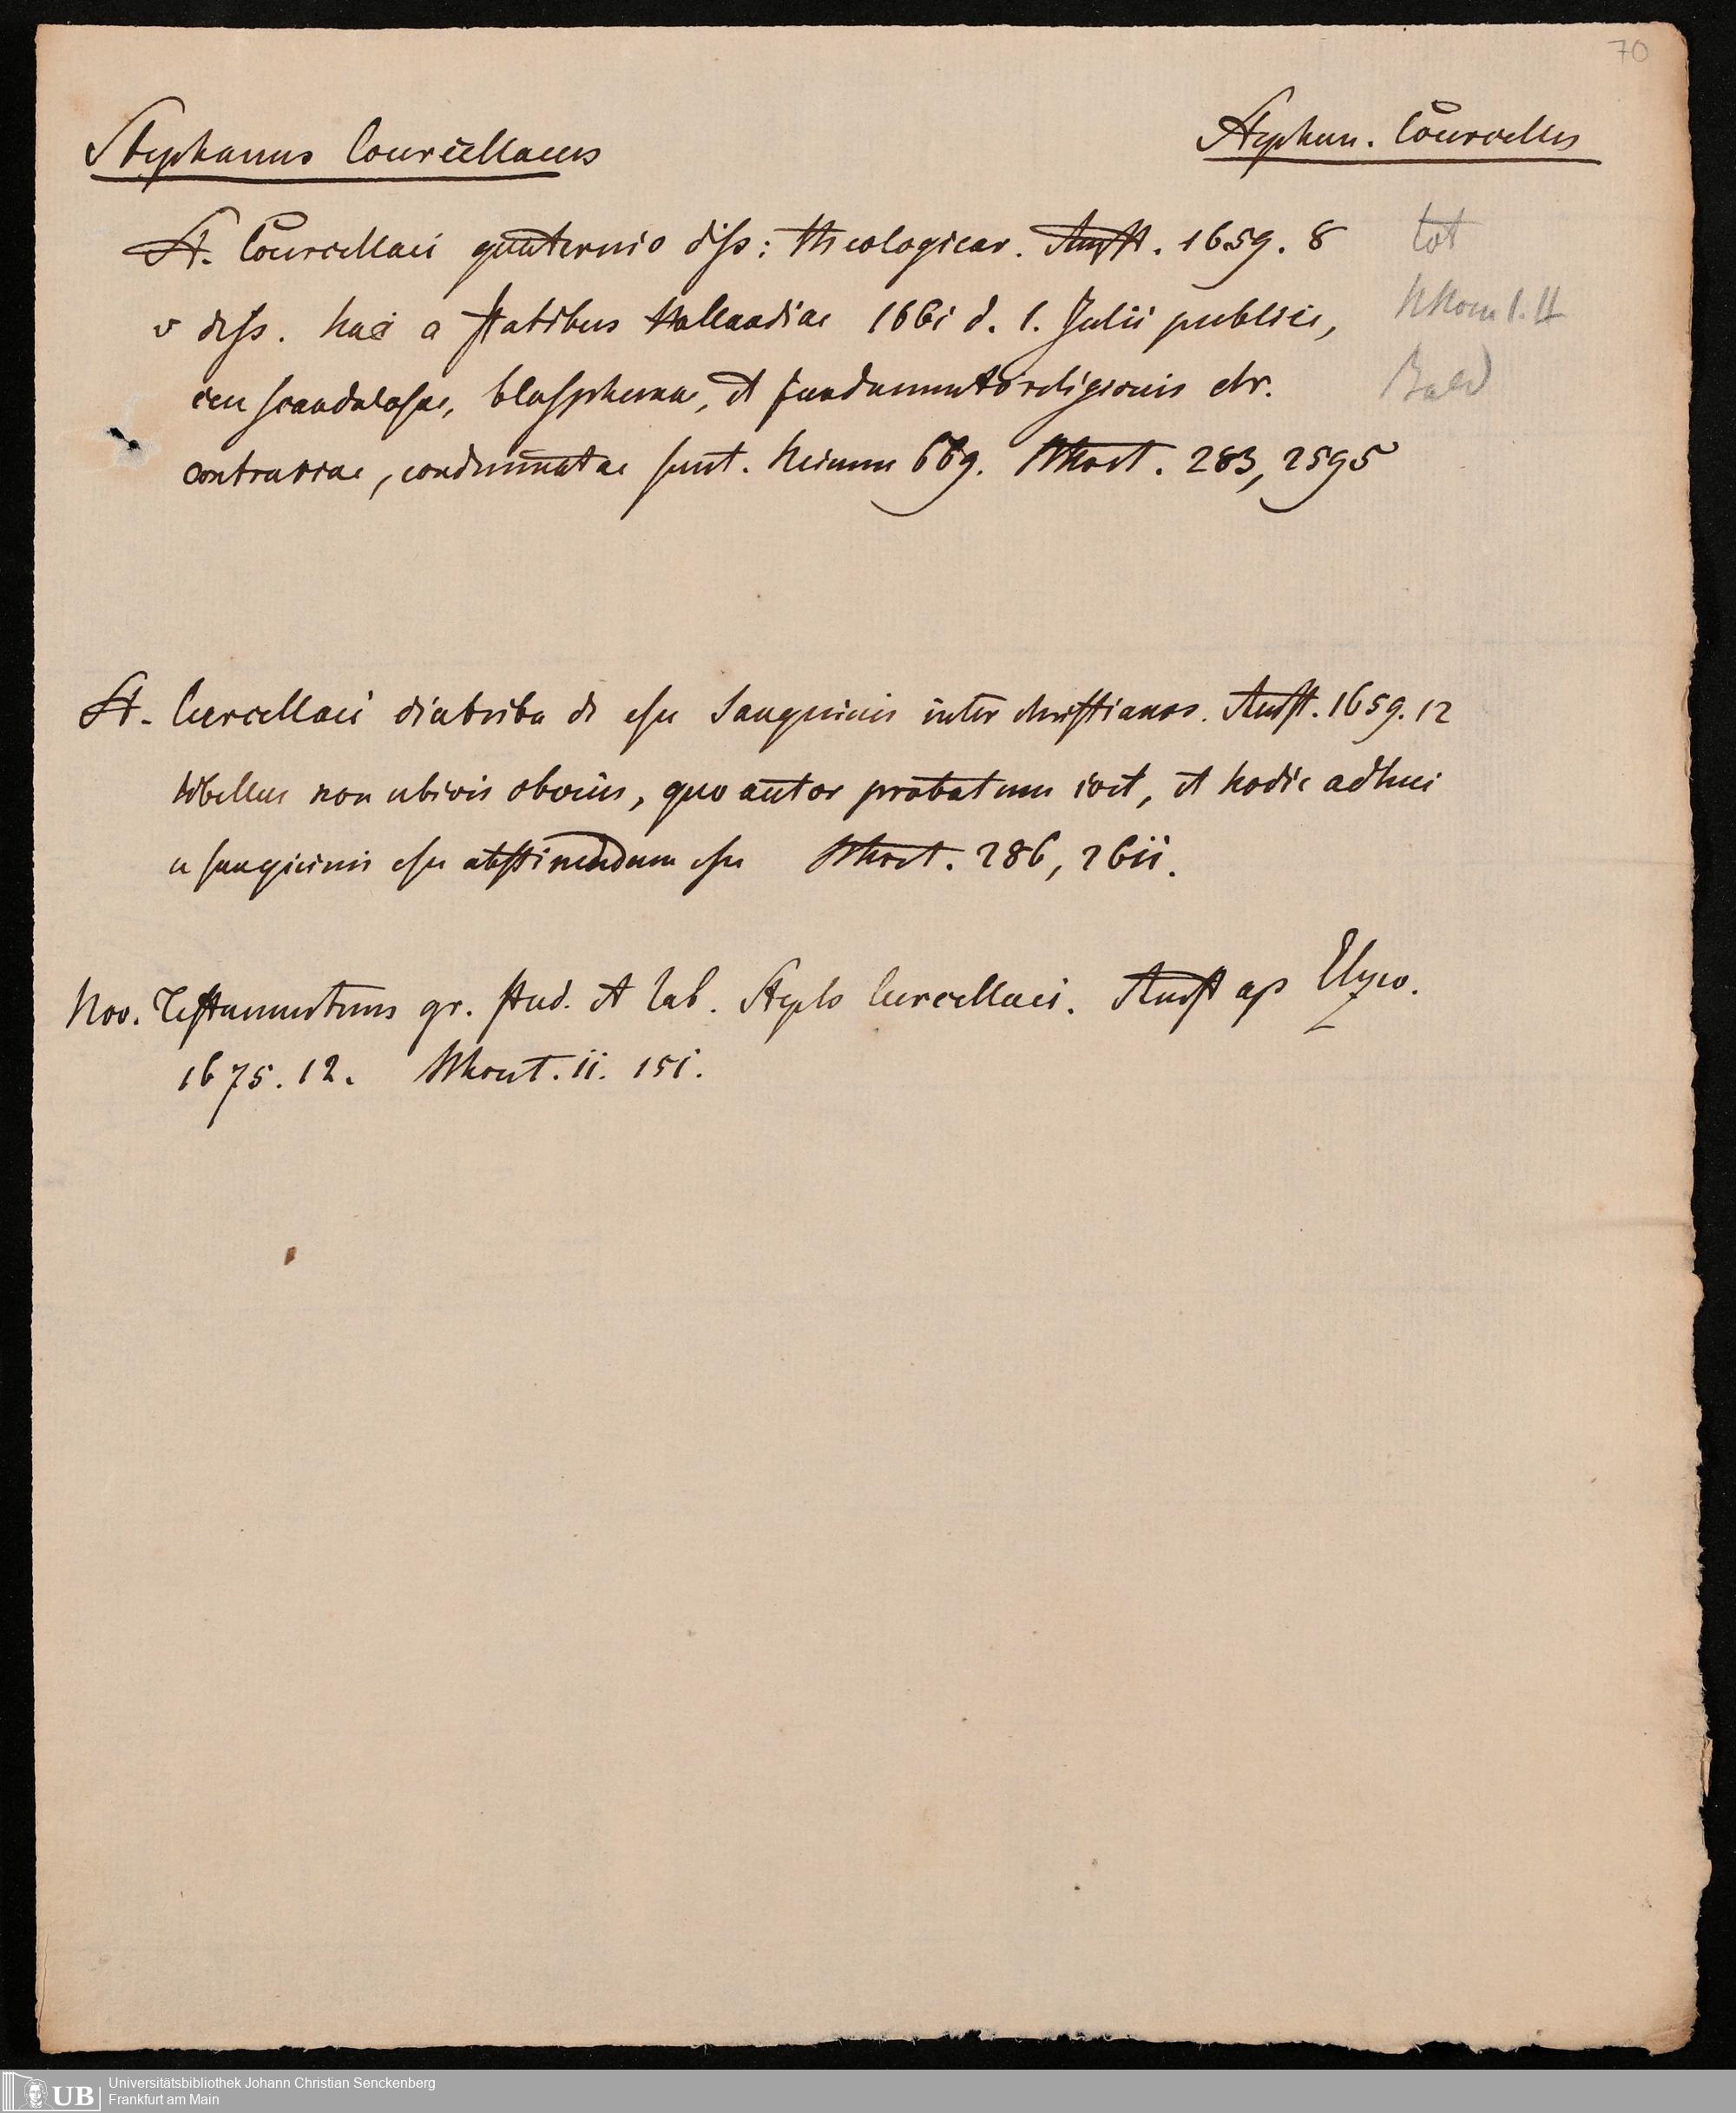 70
Stephanus Courcellaeus
Stephan. Courcelles
St. Courcellaei quaternio diss: theologicar. Amst. 1659. 8
v diss. hae a statibus Hollandiae 1661 d. 1. Julii publice,
ceu scandalosae, blasphemae, et fundamento religionis chr.
contrariae, condemnatae sunt. 669. 283, 2595
tot
Bald
St. Curcellaei diatriba de esu Sanguinis inter christianos. Amst. 1659. 12
libellus non ubivis obvius, quo autor probatum ivit, et hodie adhuc
a sanguinis esu abstinendum esse 286, 2611.
Nov. Testamentum gr. stud. et lab. Steph Curcellaei. Amst ap Elzev.
1675. 12. 11. 151.
UB
Universitätsbibliothek Johann Christian Senckenberg
Frankfurt am Main